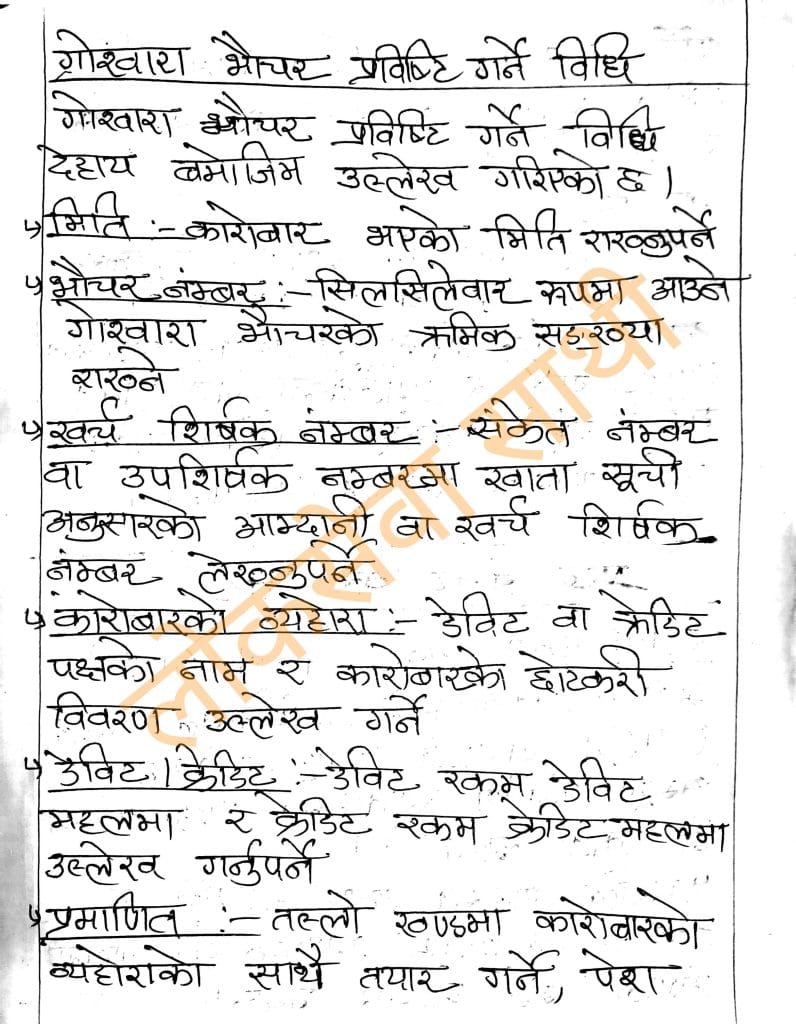 गोश्वारा भौचर प्रविष्टि गर्ने विधि
गोश्वारा भौचर प्रविष्टि गर्ने विधि
देहाय बमोजिम उल्लेख गरिएको छ ।
↳ मिति :- कारोबार भएको मिति राख्नुपर्ने
↳ भौचर नंम्बर :- सिलसिलेवार रूपमा आउने
गोश्वारा भौचरको क्रमिक सङ्ख्या
राख्ने
↳ खर्च शिर्षक नंम्बर :- संकेत नंम्बर
वा उपशिर्षक नम्बरमा खाता सूची
अनुसारको आम्दानी वा खर्च शिर्षक
नंम्बर लेख्नुपर्ने
↳ कारोबारको व्यहोरा :- डेविट वा क्रेडिट
पक्षको नाम र कारोबारको छोटकरी
विवरण उल्लेख गर्ने
↳ डेविट / क्रेडिट :- डेविट रकम डेविट
महलमा र क्रेडिट रकम क्रेडिट महलमा
उल्लेख गर्नुपर्ने
↳ प्रमाणित :- तल्लो खण्डमा कारोबारको
व्यहोराको साथै तयार गर्ने, पेश
लोकसेवा साथी